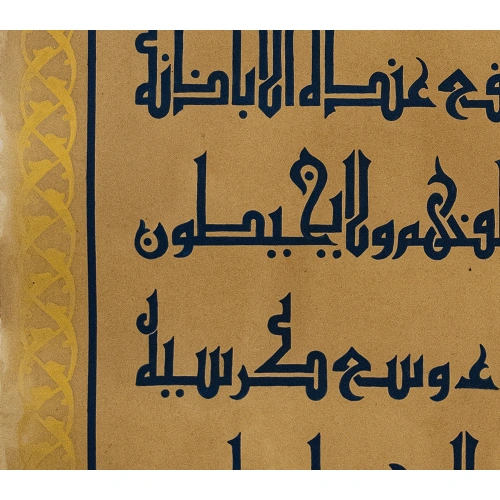 فع عنده الا باذنه
خلفهم ولا يحيطون
ء وسع كرسيه